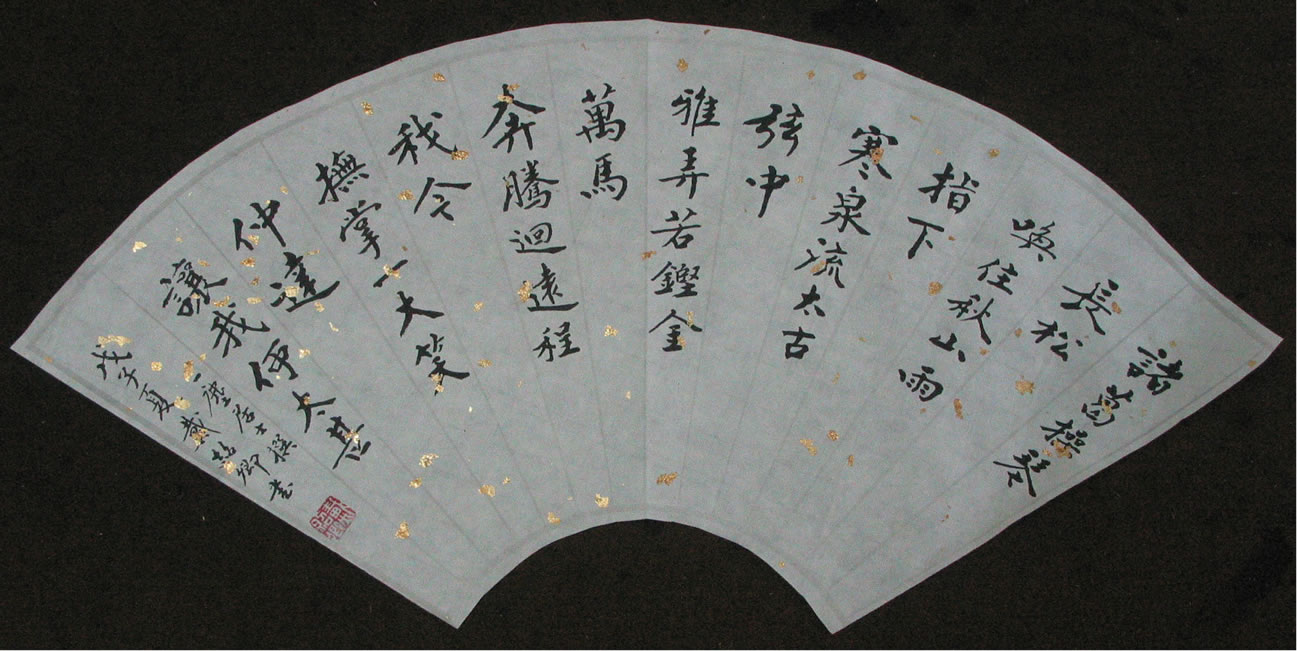 諸葛操琴
長松
喚住秋山雨
指下
寒泉流太古
弦中
雅弄若鏗金
萬馬
奔騰迴遠程
我今
撫掌一大笑
仲達
讓我何太甚
一塵居士撰
戊子夏戴卿書